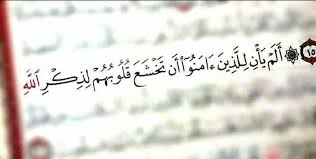 ١٥ ۞ أَلَمْ يَأْنِ لِلَّذِينَ ءَامَنُوٓا۟ أَن تَخْشَعَ قُلُوبُهُمْ لِذِكْرِ ٱللَّهِ